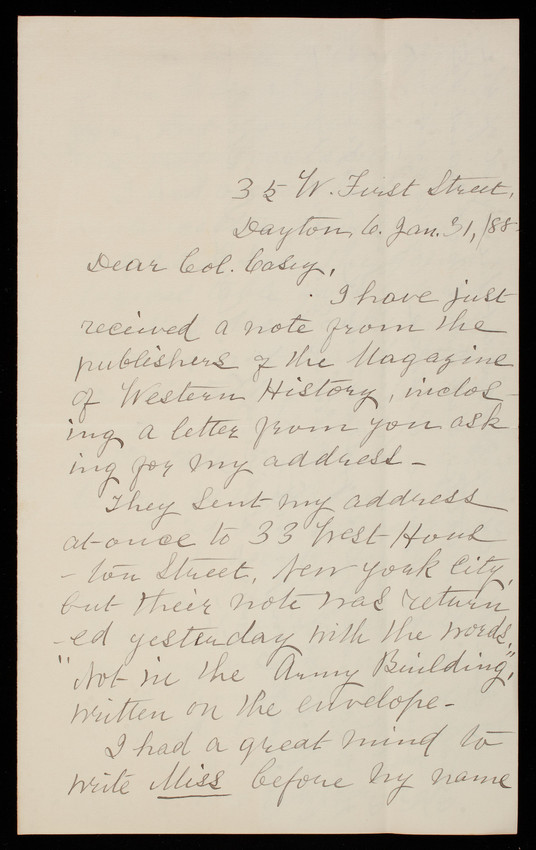 35 W. First Street,
Dayton, O. Jan. 31, /88-
Dear Col. Casey,
I have just
received a note from the
publishers of the Magazine
of Western History, inclos-
ing a letter from you ask
ing for my address-
They sent my address
at once to 33 West Hous
-ton Street, New York City,
but their note was return
-ed yesterday with the words,
"Not in the Army Building",
written on the envelope-
I had a great mind to
write Miss before my name